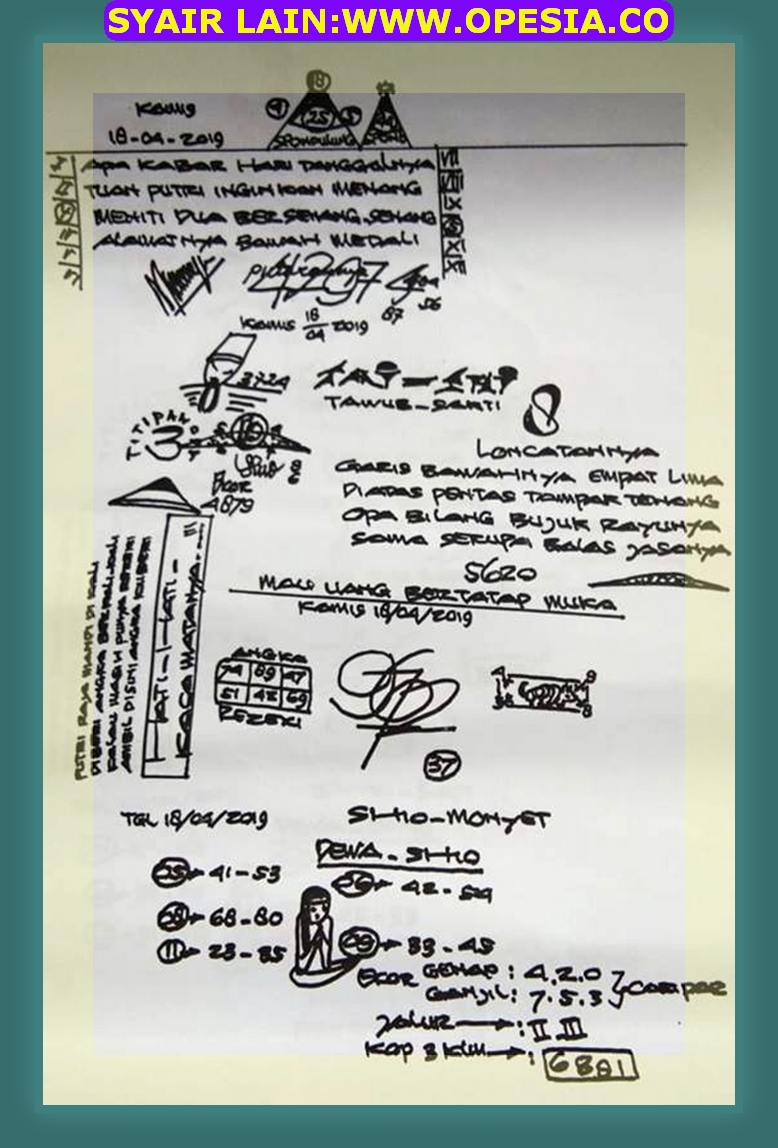 SYAIR LAIN:WWW.OPESIA.CO
KAMIS
18-04-2019
18
25
APA KABAR HARI TANGGALNYA
TUAN PUTRI INGINKAN MENANG
MENITI DUA BERSENANG-SENANG
ALAMATNYA BAWAH MEDALI
4297
87
56
KAMIS 18/04 2019
3724
TAWUR-SAKTI
8
TITIPAN
3
SHIO
EKOR
4879
LONCATANNYA
GARIS BAWAHNYA EMPAT LIMA
DIATAS PENTAS TAMPAK TENANG
OPA BILANG BUJUK RAYUNYA
SAMA SERUPA BALAS JASANYA
5620
MAU UANG BERTATAP MUKA
KAMIS 18/04/2019
PUTRI RAJA MANDI DI KALI
DIBERI ANGKA BERKALI-KALI
KALAU MASIH PUNYA REZEKI
AMBIL DISINI ANGKA KUBERI
HATI-HATI-
KACA MATANYA...!!!
ANGKA
74 89 47
51 42 69
REZEKI
37
TGL 18/04/2019
SHIO-MONYET
DEWA-SHIO
25 41-53
26 42-54
68 68-80
11 23-35
09 33-45
EKOR GENAP: 4.2.0
GANJIL: 7.5.3
JALUR : II III
KOP 3 KLM : 6881